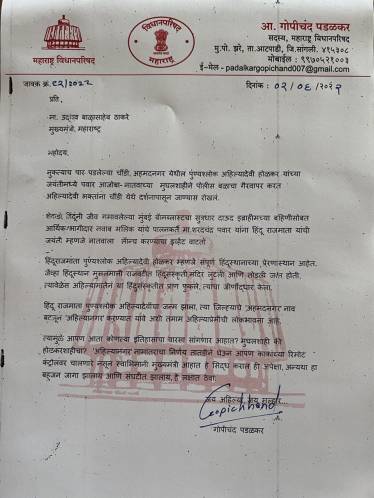 महाराष्ट्र विधानपरिषद
विधानपरिषद
महाराष्ट्र
आ. गोपीचंद पडळकर
सदस्य, महाराष्ट्र विधानपरिषद
मु.पो. झरे, ता.आटपाडी, जि.सांगली. ४१५३०८
मोबाईल : ९९७०५२१००३
ई-मेल - padalkargopichand007@gmail.com
जावक क्रं.८२/२०२२
दिनांक : ०२/०६/२०२२
प्रति ,
मा. उद्धवव बाळासाहेब ठाकरे
मुख्यमंत्री, महाराष्ट्र
महोदय,
मुक्त्याच पार पडलेल्या चौंडी, अहमदनगर येथील पुण्यश्लोक अहिल्यादेवी होळकर यांच्या
जयंतीमध्ये पवार आजोबा-नातवाच्या मुघलशाहीने पोलीस बळाचा गैरवापर करत
अहिल्यादेवी भक्तांना चौंडी येथे दर्शनापासून जाण्यास रोखलं.
शेकडो, हिंदूंनी जीव गमावलेल्या मुंबई बॉमस्फोटच्या सुत्रधार दाऊद इब्राहीमच्या बहिणीसोबत
आर्थिक भागीदार नवाब मलिक यांचे पालनकर्ते मा.शरदचंद्र पवार यांना हिंदू राजमाता यांची
जयंती म्हणजे नातवाला लॉन्च करण्याचा इव्हेंट वाटतो
हिंदूराजमाता पुण्यश्लोक अहिल्यादेवी होळकर म्हणजे संपूर्ण हिंदूस्थानाच्या प्रेरणास्थान आहेत.
जेंव्हा हिंदूस्थान मुसलमानी राजवटीत हिंदूसंस्कृती मंदिर लुटली आणि तोडली जात होती.
त्यावेळेस अहिल्यामातेनं या हिंदूसंस्कृतीत प्राण फुंकले. त्याचा जीर्णोध्दार केला.
हिंदू राजमाता पुण्यश्लोक अहिल्यादेवींचा जन्म झाला, त्या जिल्ह्याचे अहमदनगर नाव
बदलून 'अहिल्यानगर' करण्यात यावे अशी तमाम अहिल्याप्रेमींची लोकभावना आहे.
त्यामुळे आपण आता कोणत्या इतिहासाचा वारसा सांगणार आहात? मुघलशाही की
होळकरशाहीचा? 'अहिल्यानगर' नामांतराचा निर्णय तातडीने घेऊन आपण काकांच्या रिमोट
कंट्रोलवर चालणारे नसून स्वाभिमानी मुख्यमंत्री आहात हे सिद्ध कराल ही अपेक्षा, अन्यथा हा
बहूजन जागा झालाय आणि संघटीत झालाय, हे लक्षात ठेवा.
जय अहिल्या, जय मल्हार
Gopichand
गोपीचंद पडळकर